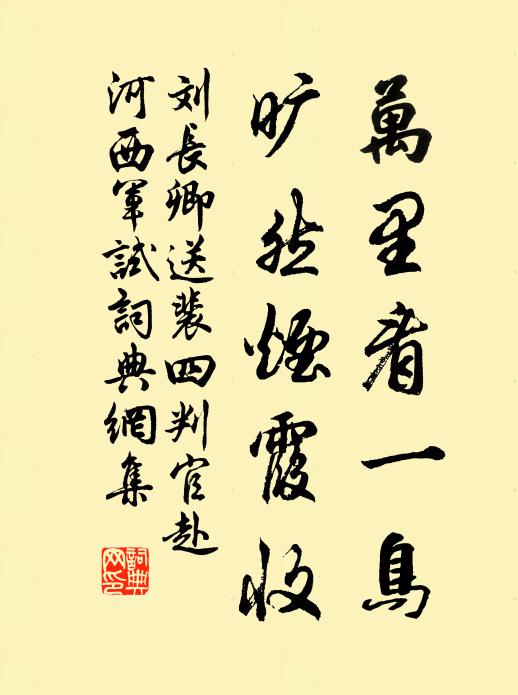 萬里看一鳥
旷然煙霞收
刘長卿送裴四判官赴
河西軍試詞典網集
詞典
网印